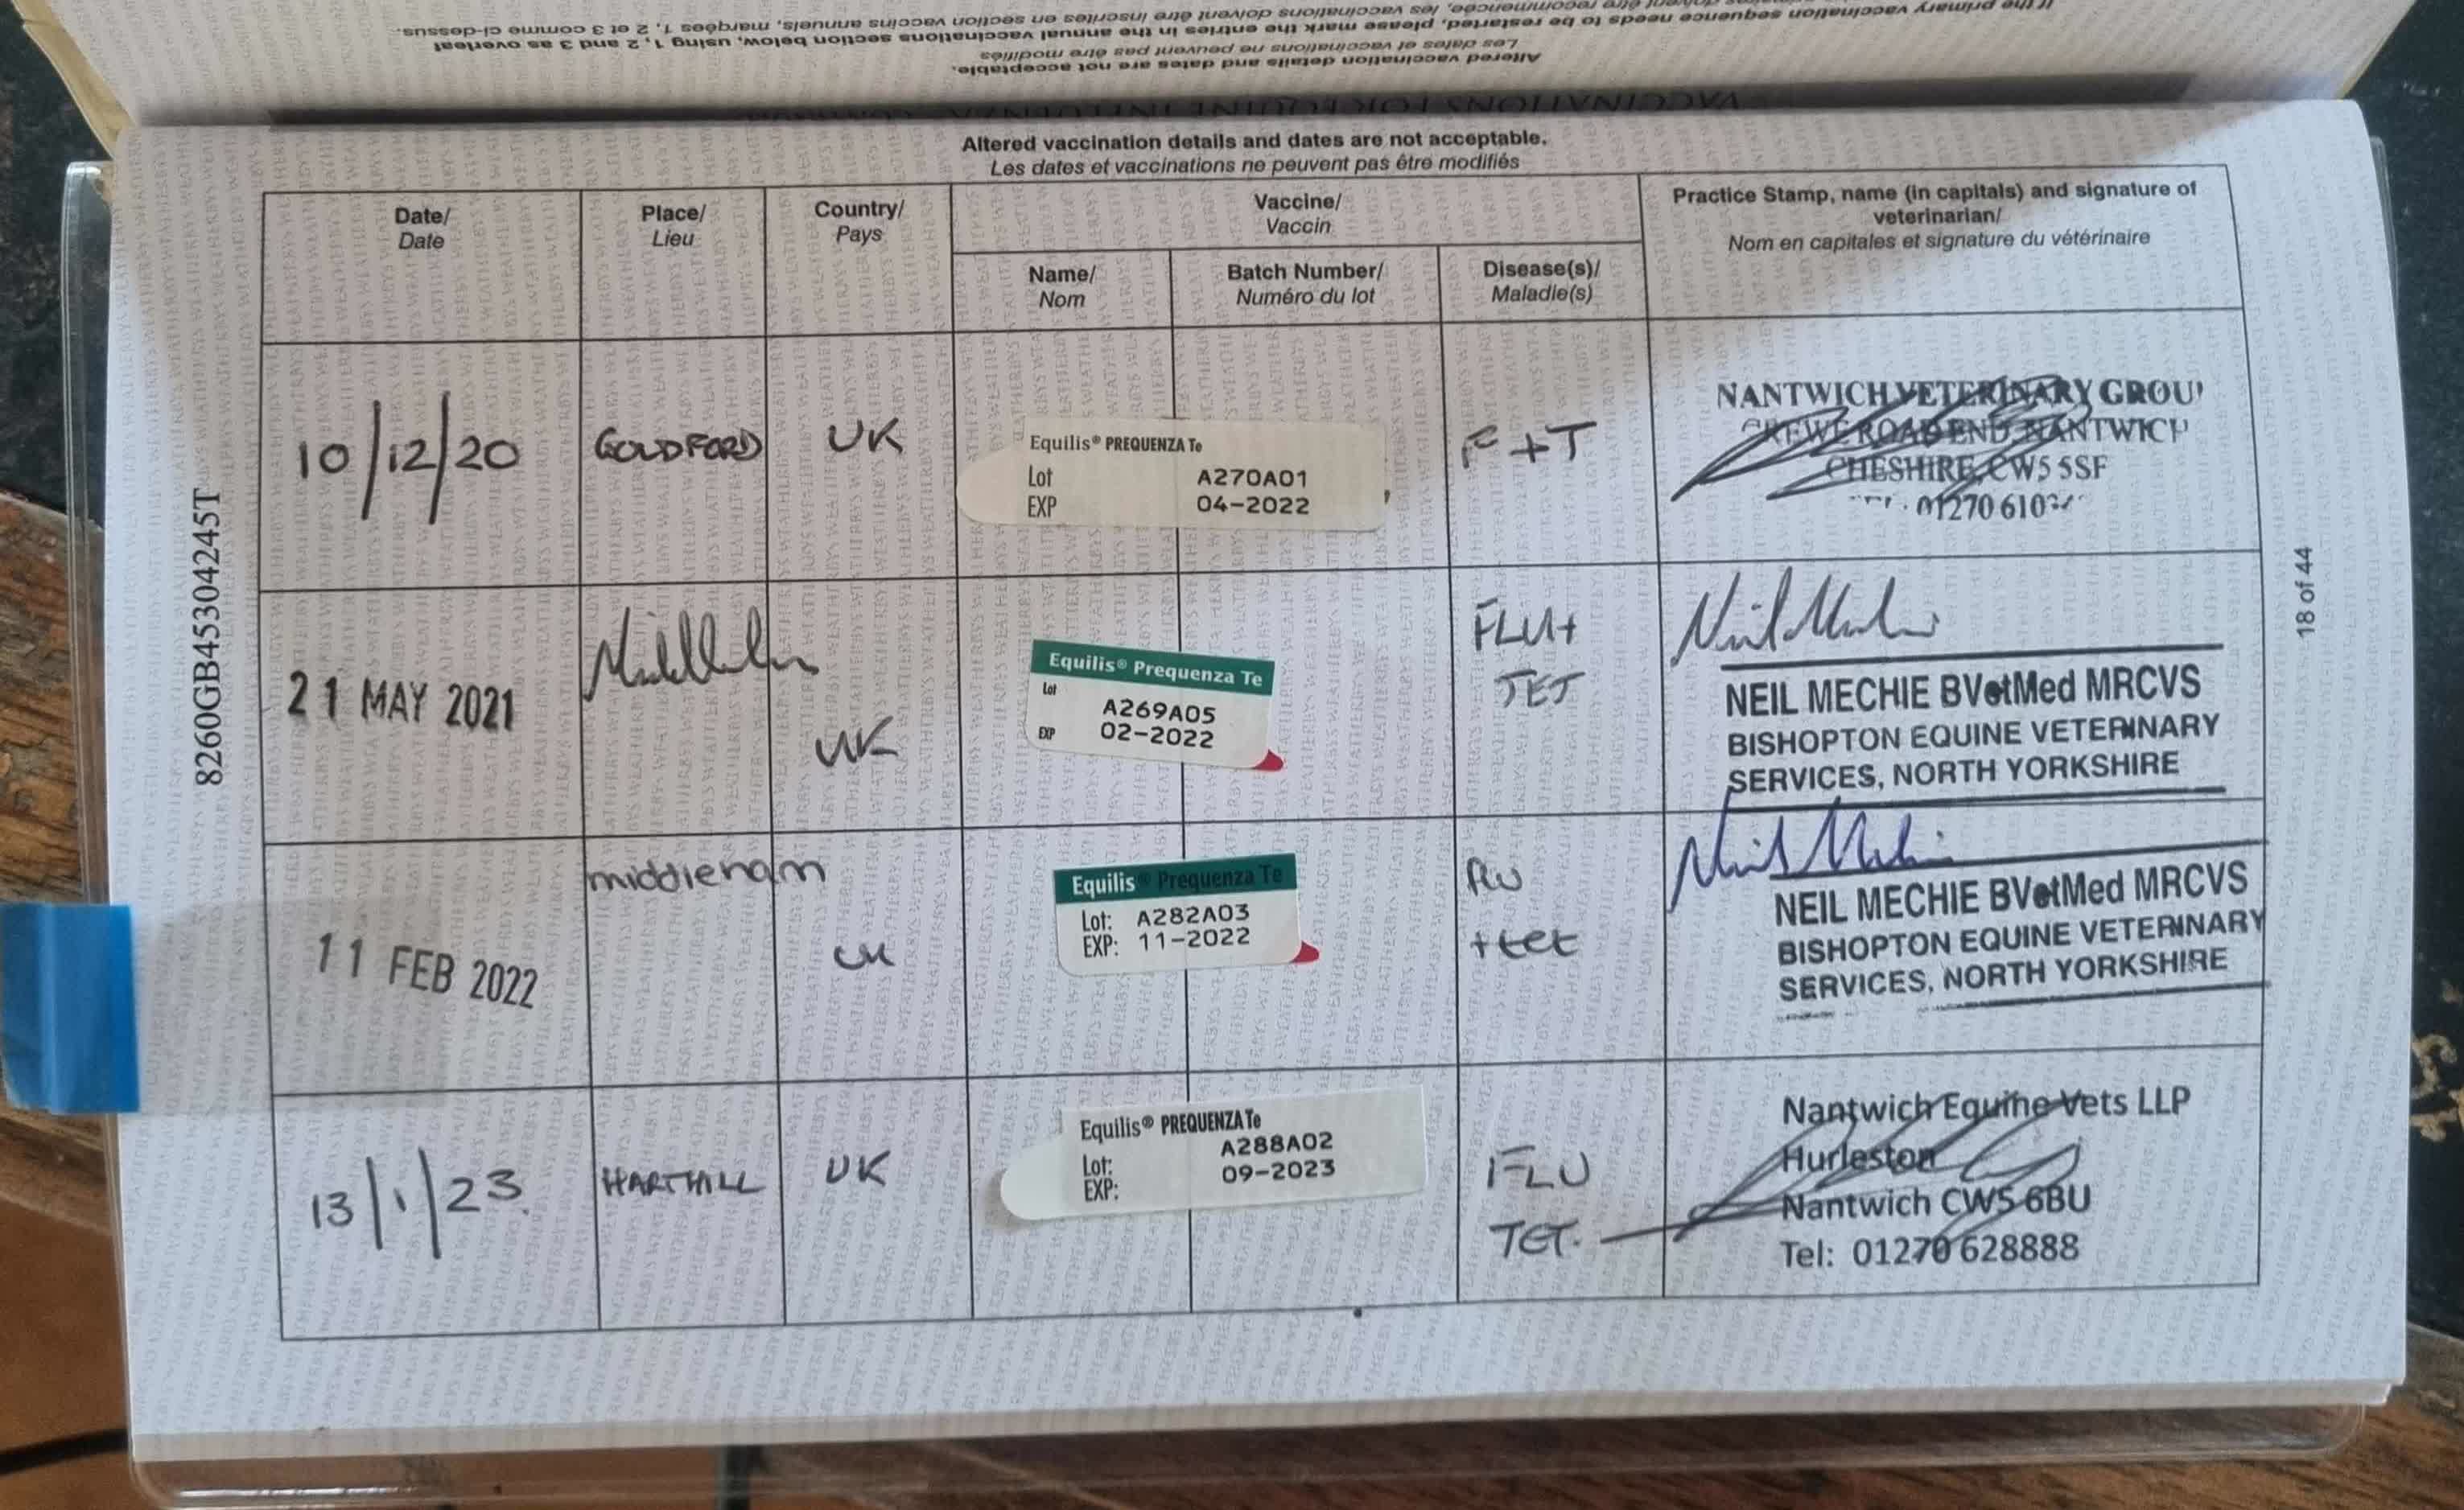 If the primary vaccination sequence needs to be restarted, please mark the entries in the annual vaccinations section below, using 1, 2 and 3 as overleaf
recommencée, les vaccinations doivent être inscrites en section vaccins annuels, marqées 1, 2 et 3 comme ci-dessus.
Altered vaccination details and dates are not acceptable.
Les dates et vaccinations ne peuvent pas être modifiés
VACCINATIONS FOR EQUINE INFLUENZA
Altered vaccination details and dates are not acceptable.
Les dates et vaccinations ne peuvent pas être modifiés
Date/
Date
Place/
Lieu
Country/
Pays
Vaccine/
Vaccin
Name/
Nom
Batch Number/
Numéro du lot
Disease(s)/
Maladie(s)
Practice Stamp, name (in capitals) and signature of
veterinarian/
Nom en capitales et signature du vétérinaire
10/12/20
GOLDFORD
UK
Equilis® PREQUENZA Te
Lot A270A01
EXP 04-2022
F+T
NANTWICH VETERINARY GROU
CREWE ROAD END, NANTWICH
CHESHIRE, CW5 5SF
01270 610
21 MAY 2021
UK
Equilis® Prequenza Te
Lot A269A05
EXP 02-2022
FLU+
TET
NEIL MECHIE BVetMed MRCVS
BISHOPTON EQUINE VETERINARY
SERVICES, NORTH YORKSHIRE
11 FEB 2022
middleham
UK
Equilis® Prequenza Te
Lot: A282A03
EXP: 11-2022
flu
+tet
NEIL MECHIE BVetMed MRCVS
BISHOPTON EQUINE VETERINARY
SERVICES, NORTH YORKSHIRE
13/1/23.
HARTHILL
UK
Equilis® PREQUENZA Te
Lot: A288A02
EXP: 09-2023
FLU
TET.
Nantwich Equine Vets LLP
Hurleston
Nantwich CW5 6BU
Tel: 01270 628888
8260GB45304245T
18 of 44